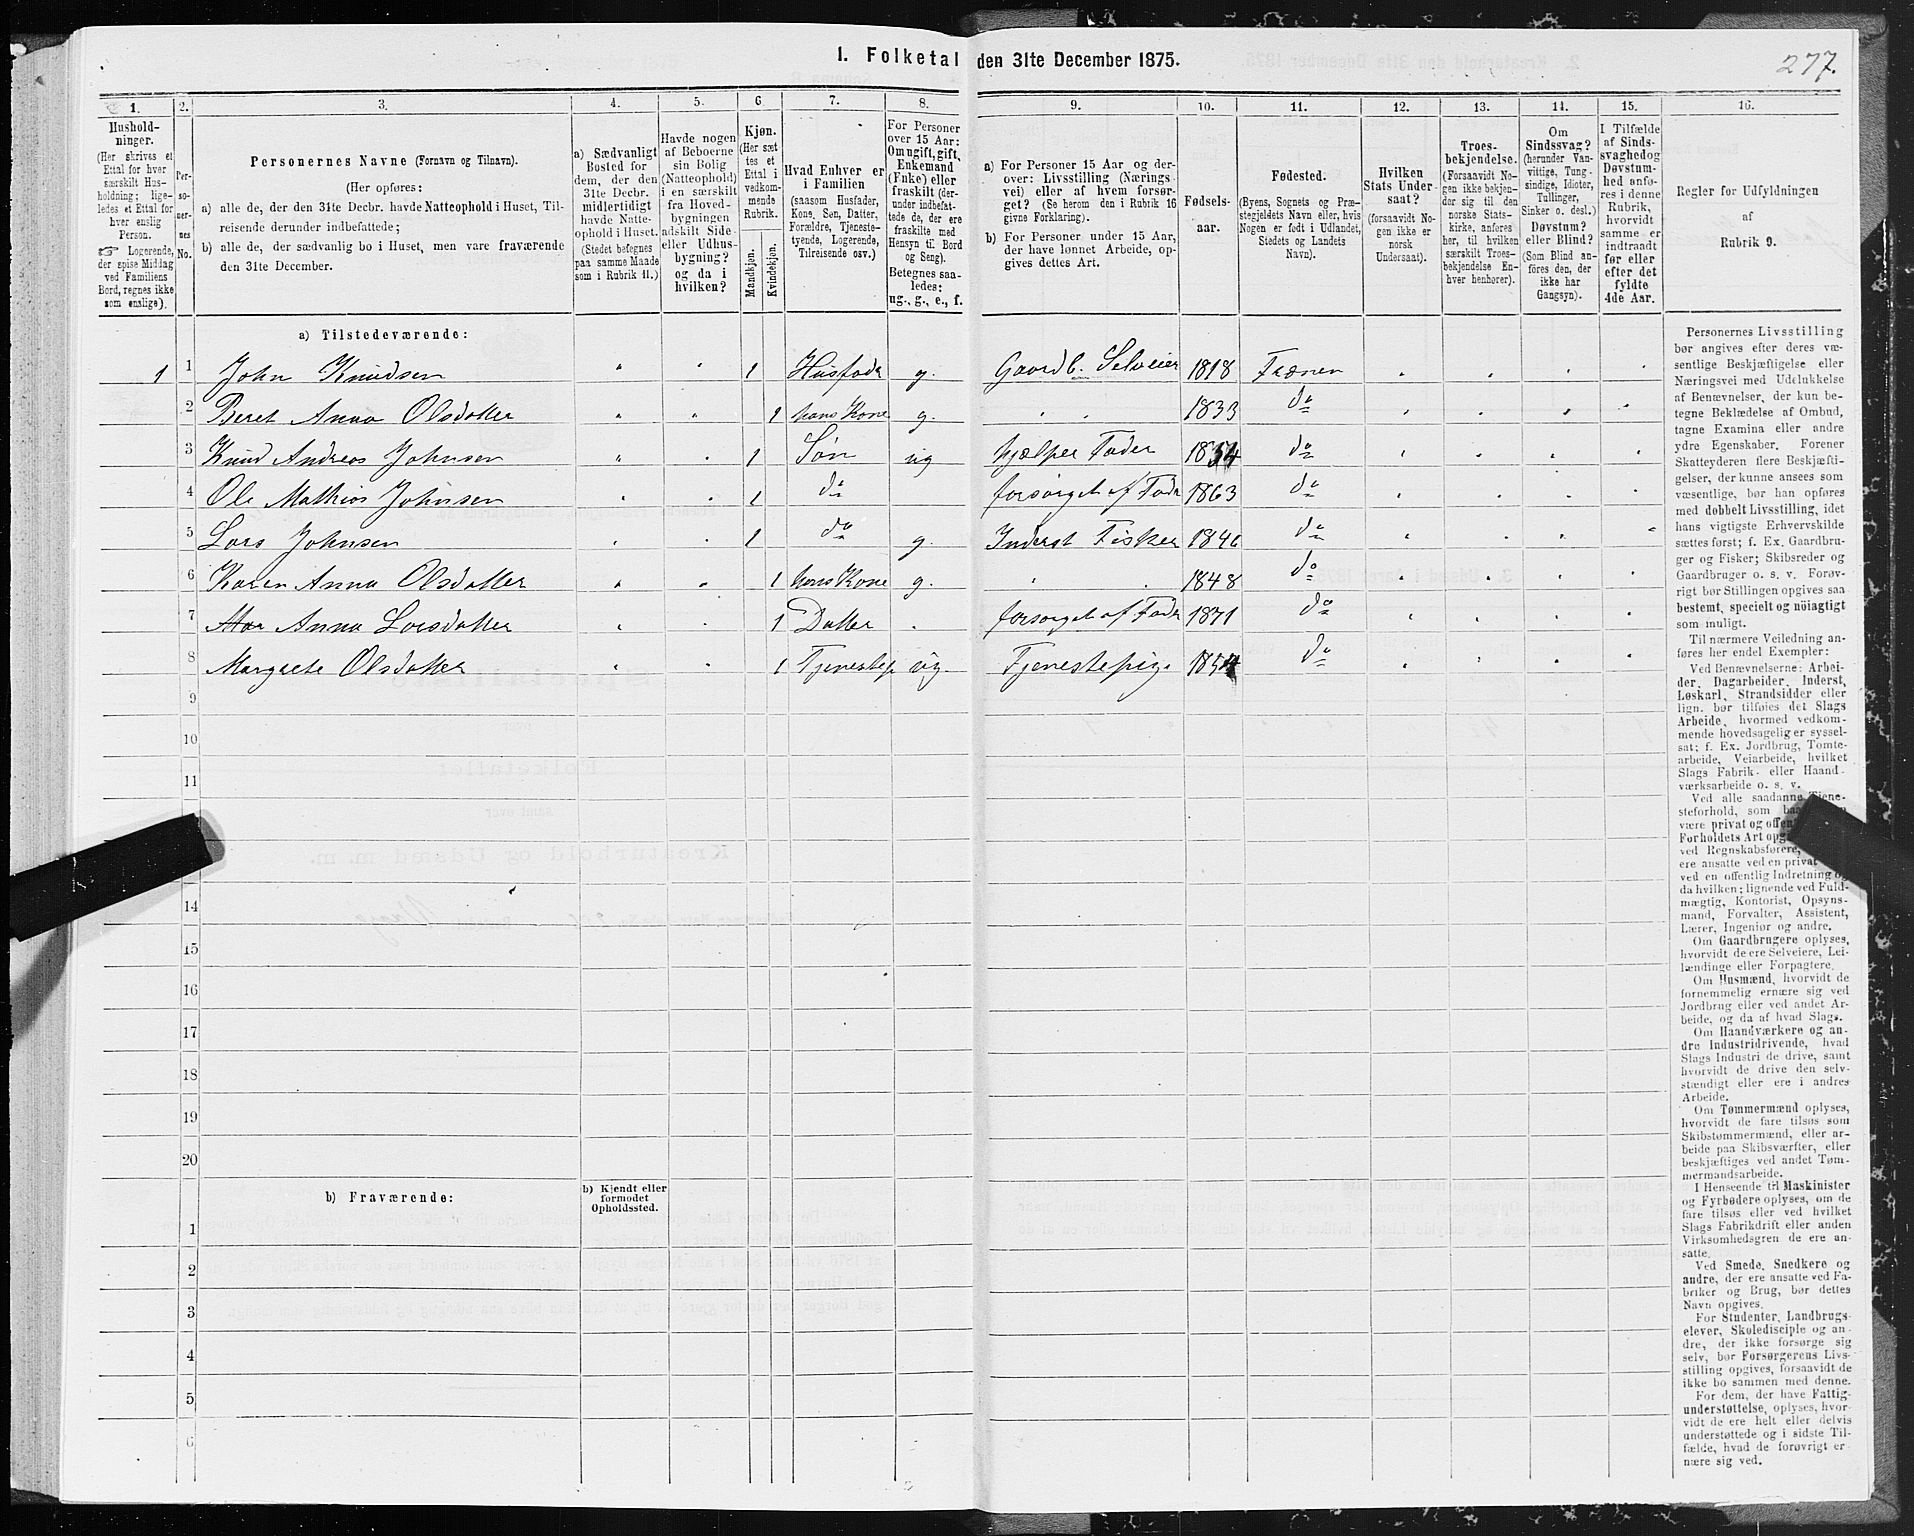 1. Folketal den 31te December 1875.
277.
1.
2.
3.
4.
5.
6
7.
8.
9.
10.
11.
12.
13.
14.
15.
16.
Hushold-
ninger.
(Her skrives et
Ettal for hver
særskilt Hus-
holdning; lige-
ledes et Ettal for
hver enslig
Person.
☞ Logerende,
der spise Middag
ved Familiens
Bord, regnes ikke
som enslige).
Per-
so-
ner-
nes
No.
Personernes Navne (Fornavn og Tilnavn).
(Her opføres:
a) alle de, der den 31te Decbr. havde Natteophold i Huset, Til-
reisende derunder indbefattede;
b) alle de, der sædvanlig bo i Huset, men vare fraværende
den 31te December.
a) Sædvanligt
Bosted for
dem, der den
31te Decbr.
midlertidigt
havde Natte-
ophold i Huset.
(Stedet betegnes
paa samme Maade
som i Rubrik 11.)
Havde nogen
af Beboerne
sin Bolig
(Natteophold)
i en særskilt
fra Hoved-
bygningen
adskilt Side-
eller Udhus-
bygning?
og da i
hvilken?
Kjøn.
(Her sæt
tes et
Ettal i
vedkom-
mende
Rubrik.
Mandkjøn.
Kvindekjøn.
Hvad Enhver er
i Familien
(saasom Husfader,
Kone, Søn, Datter,
Forældre, Tjeneste-
tyende, Logerende,
Tilreisende osv.)
For Personer
over 15 Aar:
Om ugift, gift,
Enkemand
(Enke) eller
fraskilt (der-
under indbefat-
tede de, der ere
fraskilte med
Hensyn til Bord
og Seng).
Betegnes saa-
ledes:
ug., g., e., f.
a) For Personer 15 Aar og der-
over: Livsstilling (Nærings-
vei) eller af hvem forsør-
get? (Se herom den i Rubrik 16
givne Forklaring).
b) For Personer under 15 Aar,
der have lønnet Arbeide, op-
gives dettes Art.
Fødsels-
aar.
Fødested.
(Byens, Sognets og Præ-
stegjeldets Navn eller, hvis
Nogen er født i Udlandet,
Stedets og Landets
Navn).
Hvilken
Stats Under-
saat?
(forsaavidt No-
gen ikke er
norsk
Undersaat).
Troes-
bekjendelse.
(Forsaavidt No-
gen ikke bekjen-
der sig til den
norske Stats-
kirke, anføres
her, til hvilken
særskilt Troes-
bekjendelse En-
hver henhører).
Om
Sindssvag?
(herunder Van-
vittige, Tung-
sindige, Idioter,
Tullinger,
Sinker o. desl.)
Døvstum?
eller Blind?
(Som Blind an-
føres den, der
ikke har
Gangsyn).
I Tilfælde
af Sinds-
svaghed og
Døvstum-
hed anfø-
res i denne
Rubrik,
hvorvidt
samme er
indtraadt
før eller
efter det
fyldte
4de Aar.
Regler for Udfyldningen
af
Rubrik 9.
a) Tilstedeværende:
1 1 John Knudsen " " 1 Husfader g. Gaardb. Selveier 1818 Frænen " " " "
2 Beret Anna Olsdatter " " 1 hans Kone g. " " 1833 do " " " "
3 Knud Andreas Johnsen " " 1 Søn ug hjælper Fader 1854 do " " " "
4 Ole Mathias Johnsen " " 1 do forsørget af Fader 1863 do " " " "
5 Lars Johnsen " " 1 do g. Inderst Fisker 1846 do " " " "
6 Karen Anna Olsdatter " " 1 hans Kone g. " " 1848 do " " " "
7 Anna Larsdatter " " 1 Datter " forsørget af Fader 1871 do " " " "
8 Margrete Olsdatter " " 1 Tjenestep ug Tjenestepige 1854 do " " " "
9
10
11
14
15
16
17
18
19
20
b) Fraværende:
b) Kjendt eller
formodet
Opholdssted.
1
2
3
4
5
6
Personernes Livsstilling
bør angives efter deres væ-
sentlige Beskjæftigelse eller
Næringsvei med Udelukkelse
af Benævnelser, der kun be-
tegne Beklædelse af Ombud,
tagne Examina eller andre
ydre Egenskaber. Forener
Skatteyderen flere Beskjæfti-
gelser, der kunne ansees som
væsentlige, bør han opføres
med dobbelt Livsstilling, idet
hans vigtigste Erhvervskilde
sættes først; f. Ex. Gaardbru-
ger og Fisker; Skibsreder og
Gaardbruger o. s. v. Forøv-
rigt bør Stillingen opgives saa
bestemt, specielt og nöiagtigt
som muligt.
Til nærmere Veiledning an-
føres her endel Exempler:
Ved Benævnelserne: Arbei-
der, Dagarbeider, Inderst,
Løskarl, Strandsidder eller
lign. bør tilføies det Slags
Arbeide, hvormed vedkom-
mende hovedsagelig er syssel-
sat; f. Ex. Jordbrug, Tomte-
arbeide, Veiarbeide, hvilket
Slags Fabrik- eller Haand-
værksarbeide o. s. v.
Ved alle saadanne Tjene-
steforhold, som
være privat og offen
Forholdets Art opg
ved Regnskabsførere,
ere ansatte ved en privat
ved en offentlig Indretning og
da hvilken; lignende ved Fuld-
mægtig, Kontorist, Opsyns-
mand, Forvalter, Assistent,
Lærer, Ingeniør og andre.
Om Gaardbrugere oplyses,
hvorvidt de ere Selveiere, Lei-
lændinge eller Forpagtere.
Om Husmænd, hvorvidt de
fornemmelig ernære sig ved
Jordbrug eller ved andet Ar-
beide, og da af hvad Slags.
Om Haandværkere og an-
dre Industridrivende, hvad
Slags Industri de drive, samt
hvorvidt de drive den selv-
stændigt eller ere i andres
Arbeide.
Om Tømmermænd oplyses,
hvorvidt de fare tilsøs som
Skibstømmermænd, eller ar-
beide paa Skibsværfter, eller
beskjæftiges ved andet Tøm-
mermandsarbeide.
I Henseende til Maskinister
og Fyrbødere oplyses, om de
fare tilsøs eller ved hvilket
Slags Fabrikdrift eller anden
Virksomhedsgren de ere an-
satte.
Ved Smede, Snedkere og
andre, der ere ansatte ved Fa-
briker og Brug, bør dettes
Navn opgives.
For Studenter, Landbrugs-
elever, Skoledisciple og an-
dre, der ikke forsørge sig
selv, bør Forsørgerens Livs-
stilling opgives, forsaavidt de
ikke bo sammen med denne.
For dem, der have Fattig-
understøttelse, oplyses, hvor-
vidt de ere helt eller delvis
understøttede og i sidste Til-
fælde, hvad de forøvrigt er-
nære sig ved.